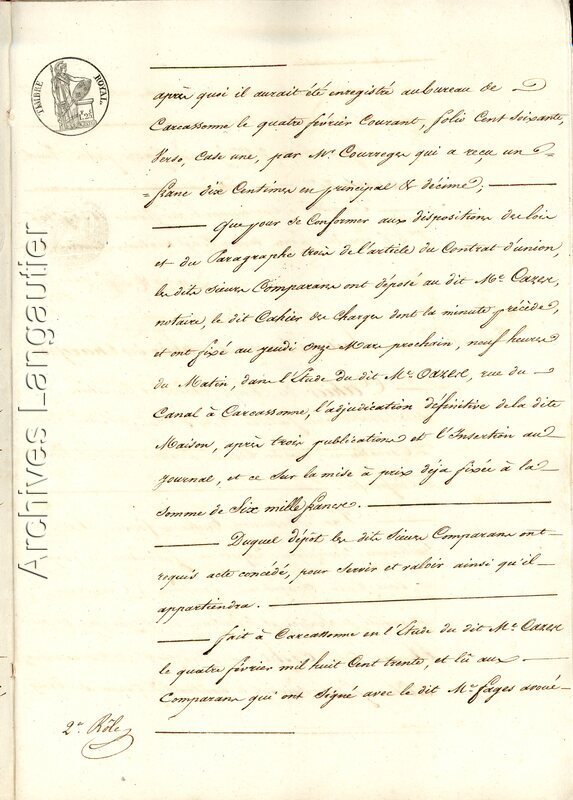 TIMBRE ROYAL
1F25
après quoi il aurait été enregistré au bureau de
Carcassonne le quatre février Courant, folio Cent soixante,
Verso, Case une, par Mr. Courrege qui a reçu un
franc dix Centimes en principal & décime,
que pour se Conformer aux dispositions des lois
et du Paragraphe trois de l'article du Contrat d'union,
les dits sieurs Comparans ont déposé au dit Me. Cazes,
notaire, le dit Cahier des Charges dont la minute précède,
et ont fixé au jeudi onze Mars prochain, neuf heures
du Matin, dans l'Etude du dit Me. Cazes, rue du
Canal à Carcassonne, l'adjudication définitive de la dite
Maison, après trois publications et l'Insertion au
Journal, et ce sur la mise à prix déja fixée à la
somme de Six mille francs.
Duquel dépôt les dits Sieurs Comparans ont
requis acte concédé, pour servir et valoir ainsi qu'il
appartiendra.
fait à Carcassonne en l'Etude du dit Me. Cazes
le quatre février mil huit Cent trente, et lû aux
Comparans qui ont signé avec le dit Me. Fages avoué
2e. Rôle
Archives Langautier